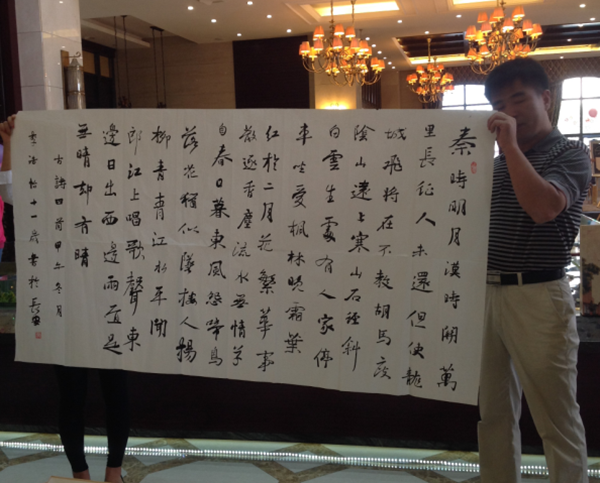 秦時明月漢時關萬
里長征人未還但使龍
城飛將在不教胡馬度
陰山遠上寒山石徑斜
白雲生處有人家停
車坐愛楓林晚霜葉
紅於二月花繁華事
散逐香塵流水無情草
自春日暮東風怨啼鳥
落花猶似墜樓人楊
柳青青江水平聞
郎江上唱歌聲東
邊日出西邊雨道是
無晴却有晴
古詩四首甲午冬月
十一歲書於長